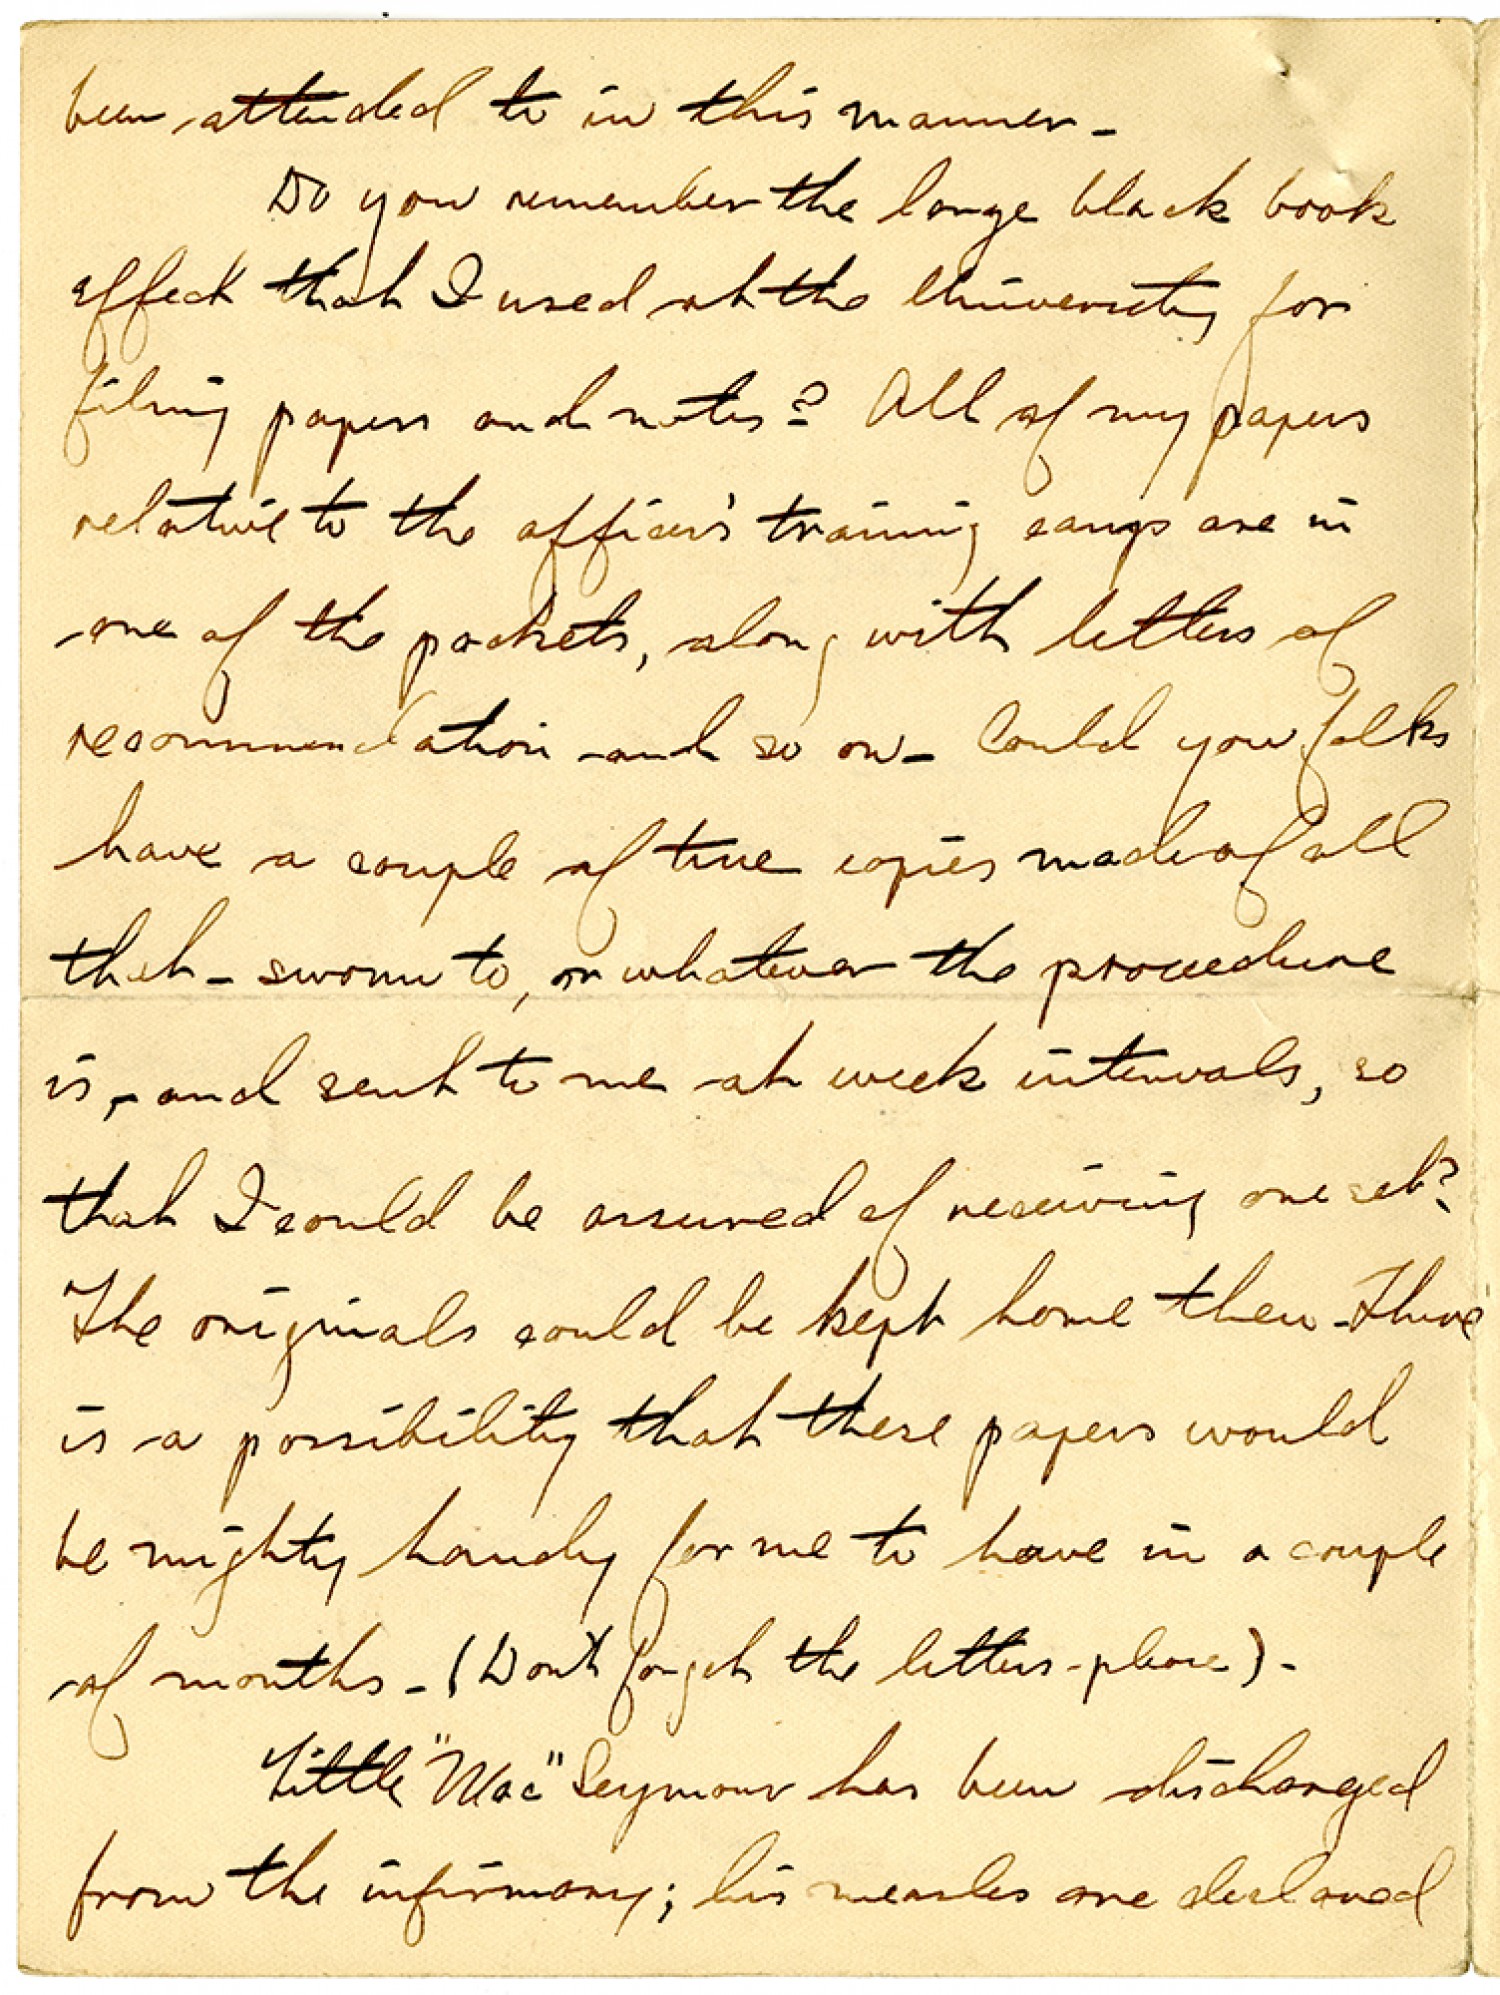 been attended to in this manner -
Do you remember the large black book
effect that I used at the University for
filing papers and notes? All of my papers
relative to the officer's training camps are in
one of the pockets, along with letters of
recommendation and so on - Could you folks
have a couple of true copies made of all
that - sworn to, or whatever the procedure
is, - and sent to me at week intervals, so
that I could be assured of receiving one set?
The originals could be kept home then - There
is a possibility that these papers would
be mighty handy for me to have in a couple
of months - (Don't forget the letters - please) -
Little "Mac" Seymour has been discharged
from the infirmary; his measles are declared